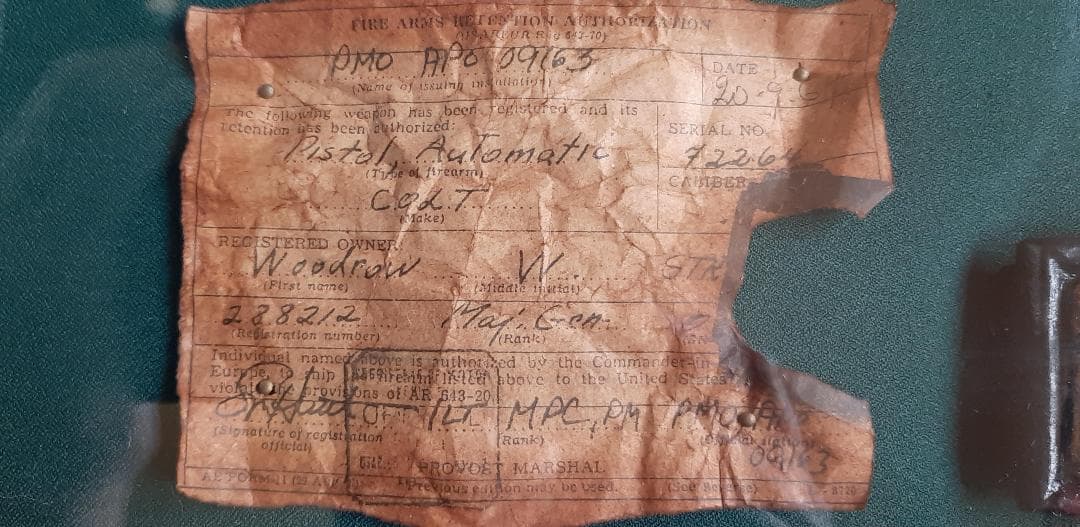 FIRE ARMS RETENTION AUTHORIZATION
(USAREUR Reg 643-70)
PMO APO 09163
(Name of issuing installation)
DATE
The following weapon has been registered and its
retention has been authorized:
SERIAL NO.
Pistol, Automatic
(Type of firearm)
CALIBER
COLT
(Make)
REGISTERED OWNER:
Woodrow W. STR
(First name) (Middle initial)
228212 Maj. Gen.
(Registration number) (Rank)
Individual named above is authorized by the Commander-in-
Europe, to ship firearm listed above to the United States
provisions of AR 643-20
1LT MPC, PM PMO,
(Signature of registration
official)
(Rank)
09163
PROVOST MARSHAL
Previous edition may be used.
(See Reverse)